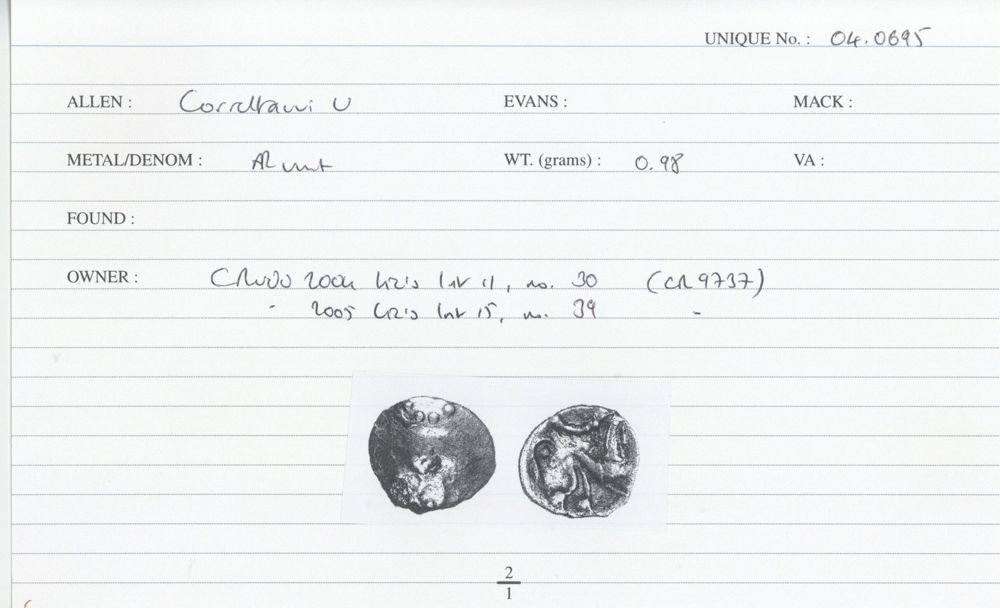 UNIQUE No. : 04.0695
ALLEN : Corieltauvi U EVANS : MACK :
METAL/DENOM : AR unit WT. (grams) : 0.98 VA :
FOUND :
OWNER : 2004 List 11, no. 30 (CR 9737)
" 2005 List 15, no. 39 "
2
1